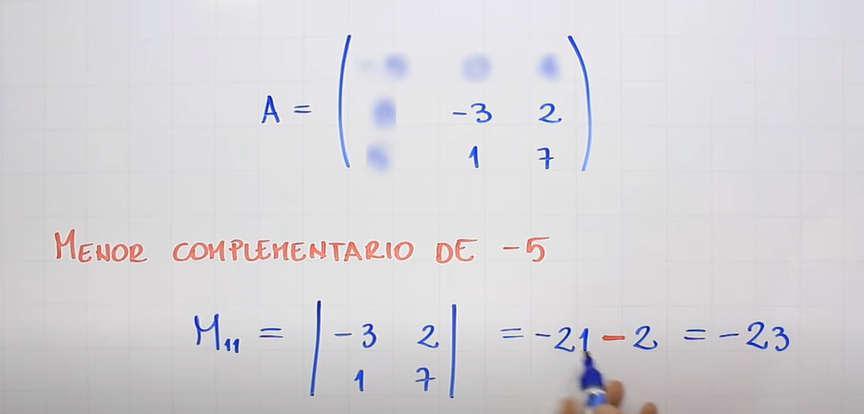 A = ( -3 2
1 7 )
MENOR COMPLEMENTARIO DE -5
M₁₁ = | -3 2 | = -21 - 2 = -23
| 1 7 |